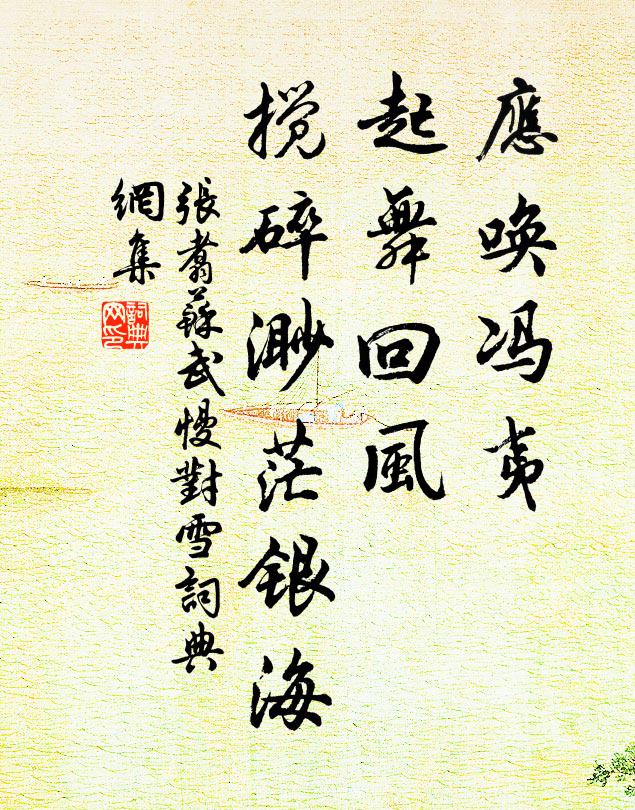 應唤冯夷
起舞回風
搅碎渺茫銀海
張翥蘇武慢對雪詞典
網集
詞典
网印